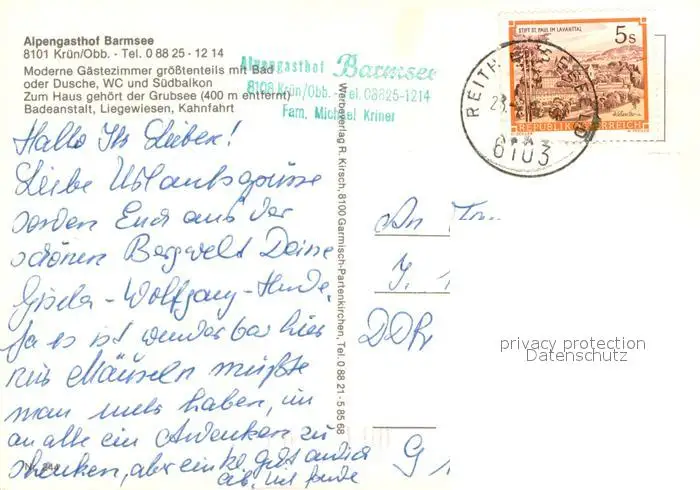 Alpengasthof Barmsee
8101 Krün/Obb. - Tel. 0 88 25 - 12 14
Moderne Gästezimmer größtenteils mit Bad
oder Dusche, WC und Südbalkon
Zum Haus gehört der Grubsee (400 m entfernt)
Badeanstalt, Liegewiesen, Kahnfahrt
Alpengasthof Barmsee
8108 Krün/Obb. - Tel. 08825-1214
Fam. Michael Kriner
STIFT ST. PAUL IM LAVANTTAL
5 S
REPUBLIK ÖSTERREICH
REITH SEEFELD
6103
Hallo Ihr Lieben!
Liebe Urlaubsgrüsse
senden Euch aus der
schönen Bergwelt Deine
Gisela - Wolfgang -
Ja es ist wunderbar hier
nur Mäuseln müßte
man mehr haben, um
an alle ein Andenken zu
schenken, aber
Werbeverlag R. Kirsch, 8100 Garmisch-Partenkirchen, Tel. 0 88 21 - 5 85 68
An
DDR
privacy protection
Datenschutz